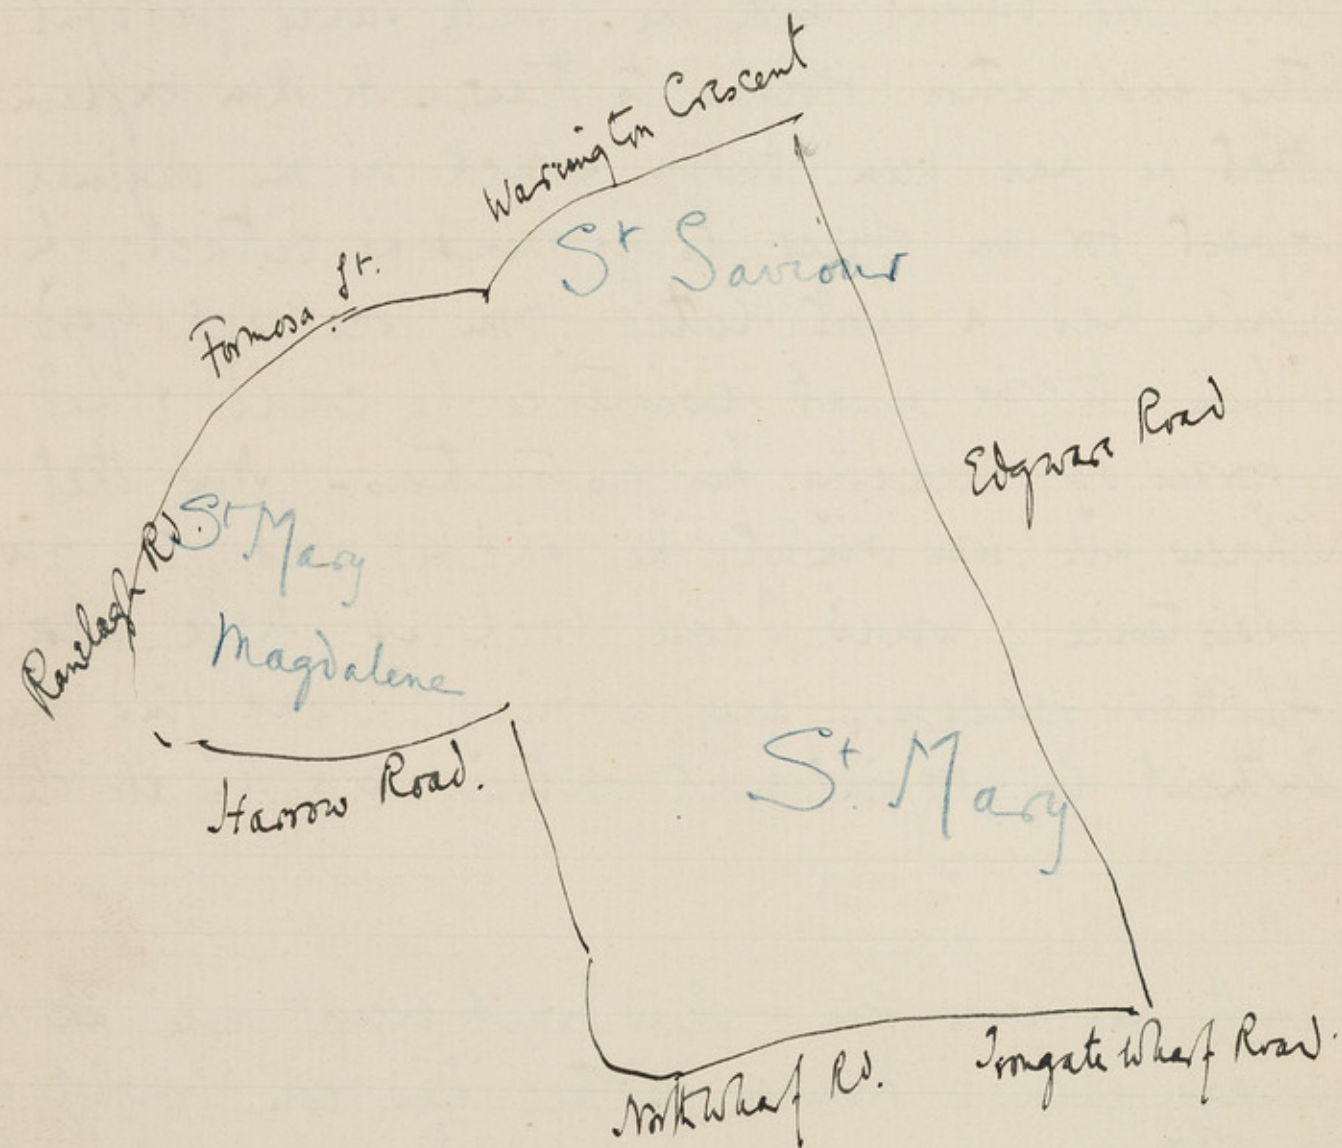 Warrington Crescent
St Saviour
Formosa St.
Edgware Road
Ranelagh Rd.
St Mary
Magdalene
Harrow Road.
St. Mary
North Wharf Rd.
Irongate Wharf Road.